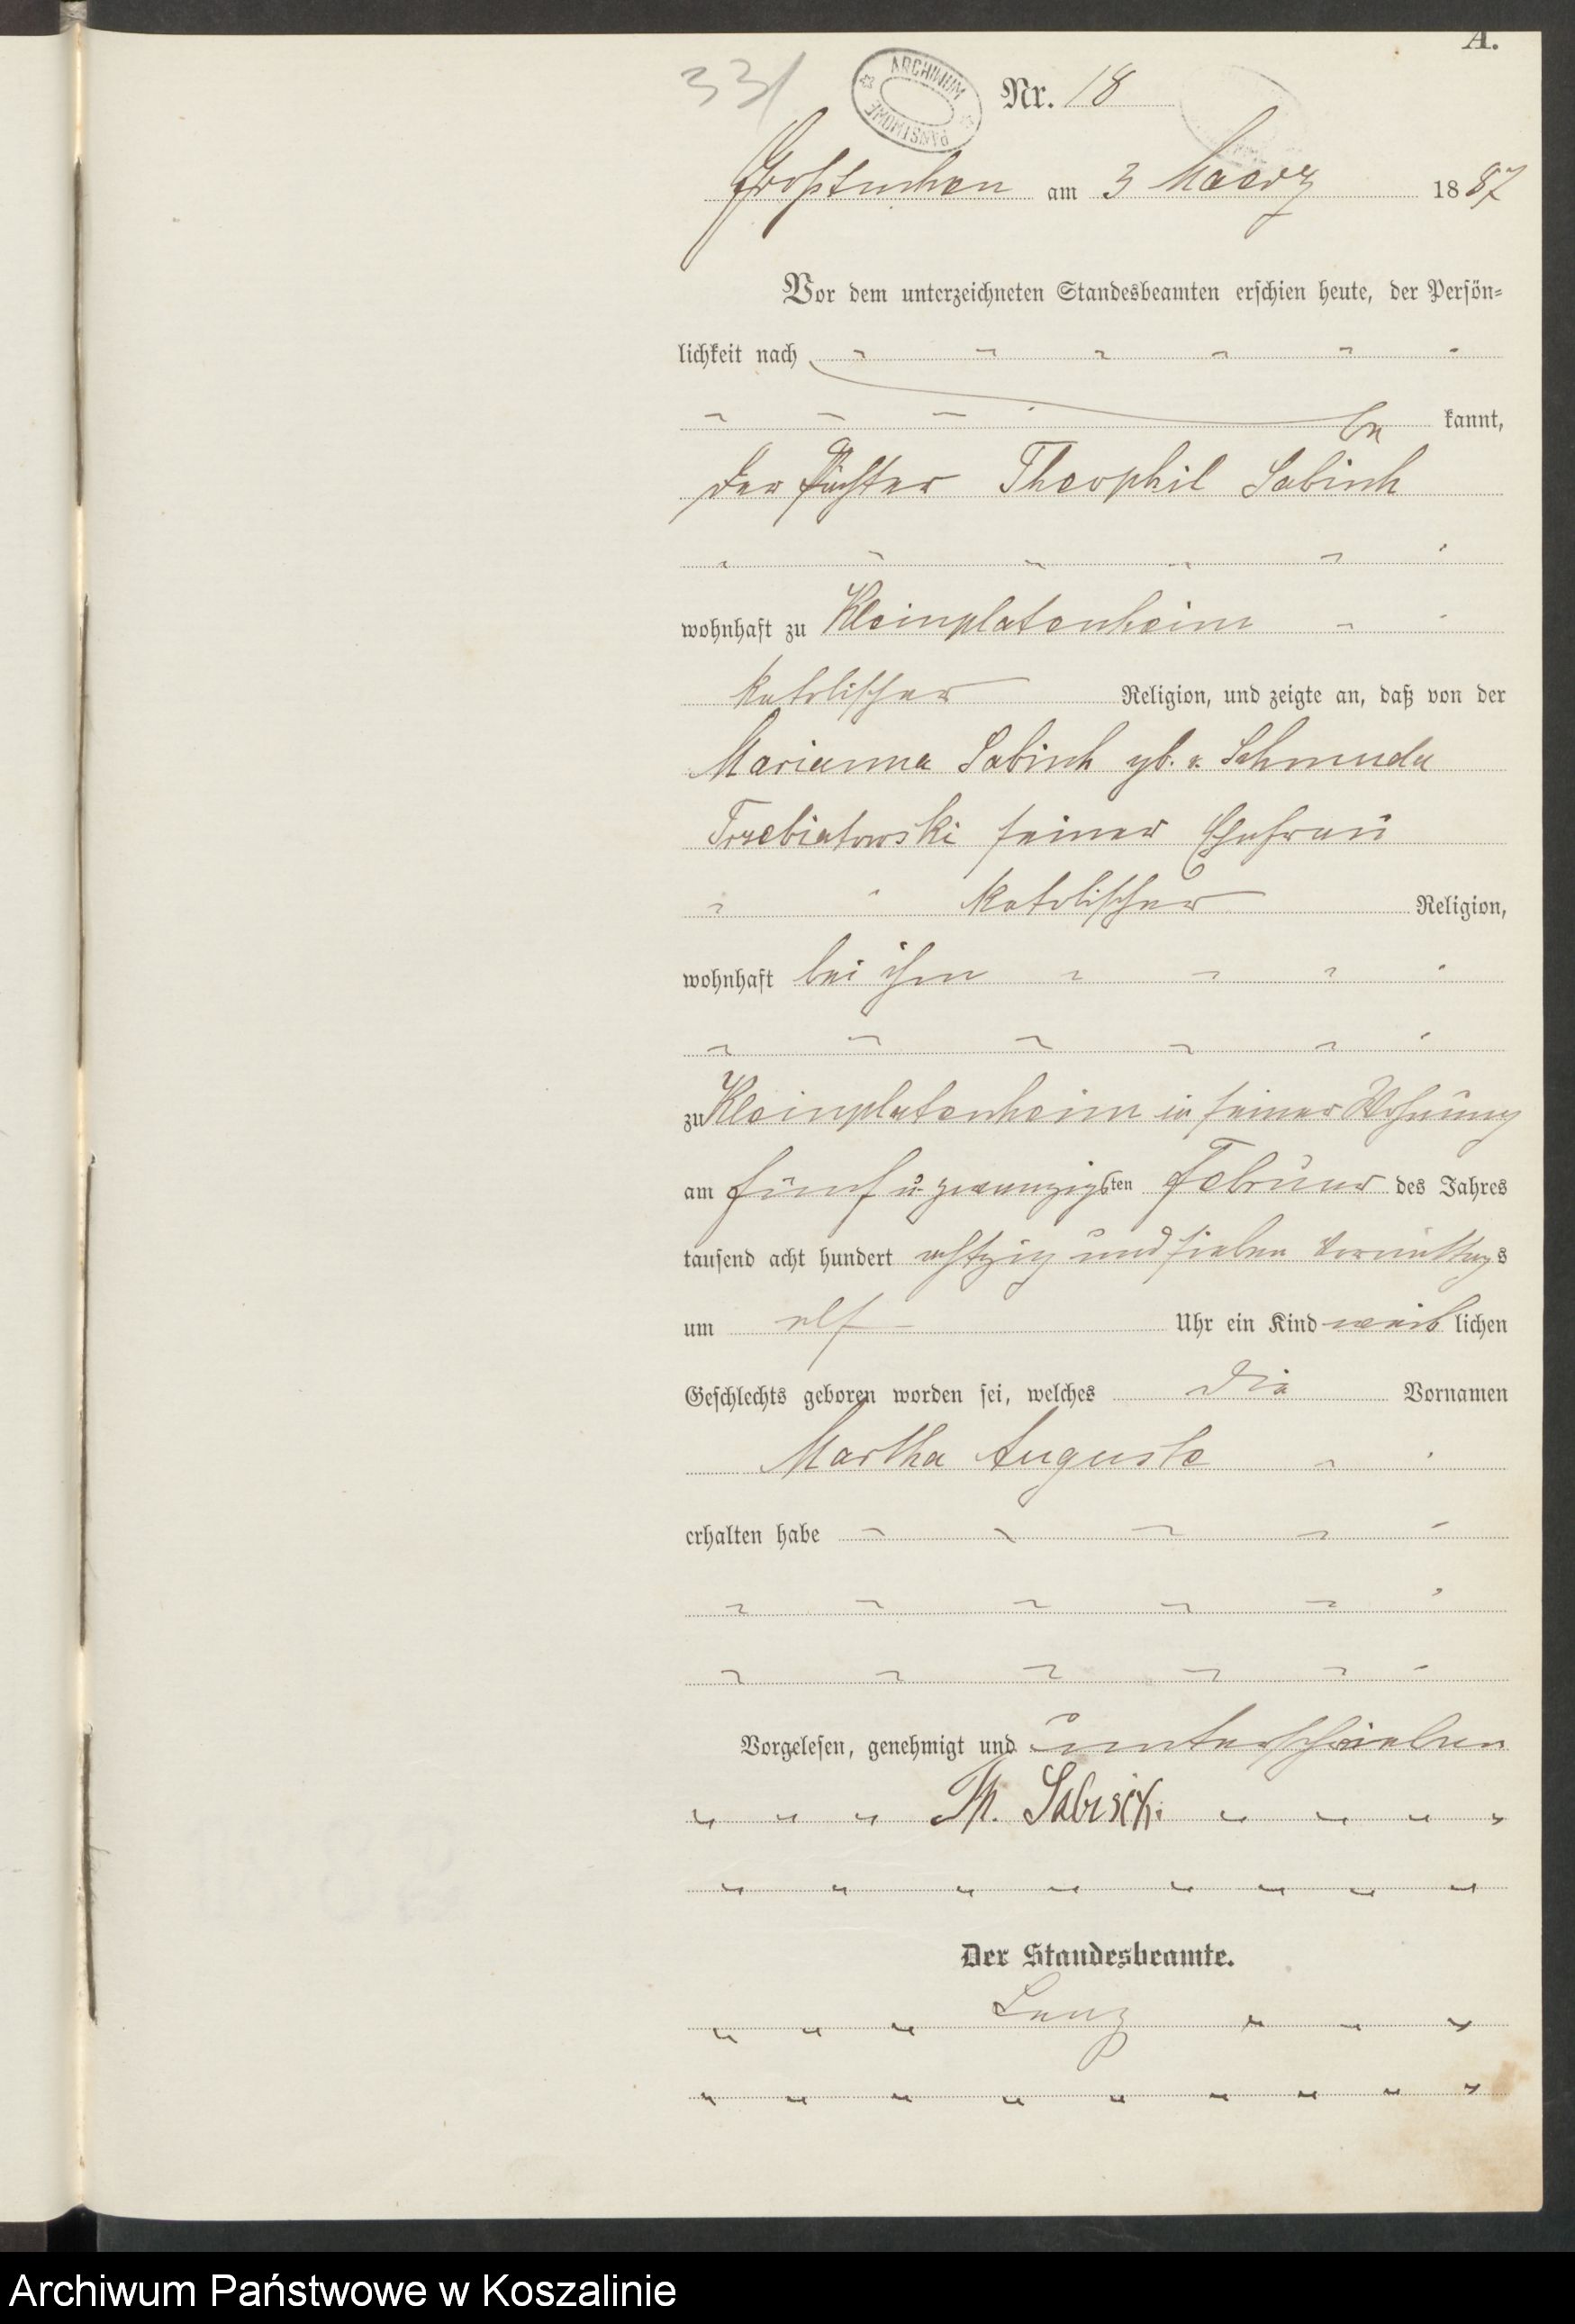 A.
33/
ARCHIWUM PAŃSTWOWE
Nr. 18
Großtuchen am 3 Maerz 1887
Vor dem unterzeichneten Standesbeamten erschien heute, der Persön-
lichkeit nach
be kannt,
der Pächter Theophil Sabisch
wohnhaft zu Kleinplatenheim
katolischer Religion, und zeigte an, daß von der
Marianna Sabisch gb. v. Schmuda
Trzebiatowski seiner Ehefrau
katolischer Religion,
wohnhaft bei ihm
zu Kleinplatenheim in seiner Wohnung
am fünf u zwanzigsten Februar des Jahres
tausend acht hundert achtzig und sieben Vormittags
um elf Uhr ein Kind weiblichen
Geschlechts geboren worden sei, welches die Vornamen
Martha Auguste
erhalten habe
Vorgelesen, genehmigt und unterschrieben
Th. Sabisch
Der Standesbeamte.
Lenz
Archiwum Państwowe w Koszalinie